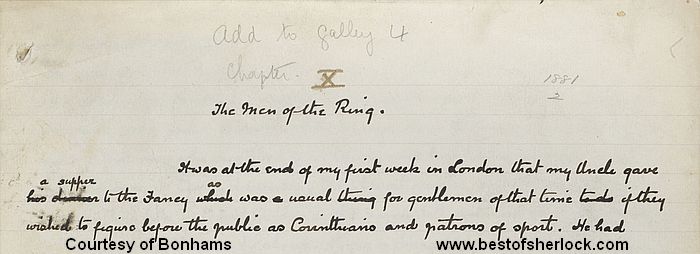 Add to galley 4
Chapter. X
1881
2
The Men of the Ring.
It was at the end of my first week in London that my Uncle gave
a supper
his dinner to the Fancy which was a usual thing for gentlemen of that time to do if they
as
wished to figure before the public as Corinthians and patrons of sport. He had
Courtesy of Bonhams
www.bestofsherlock.com